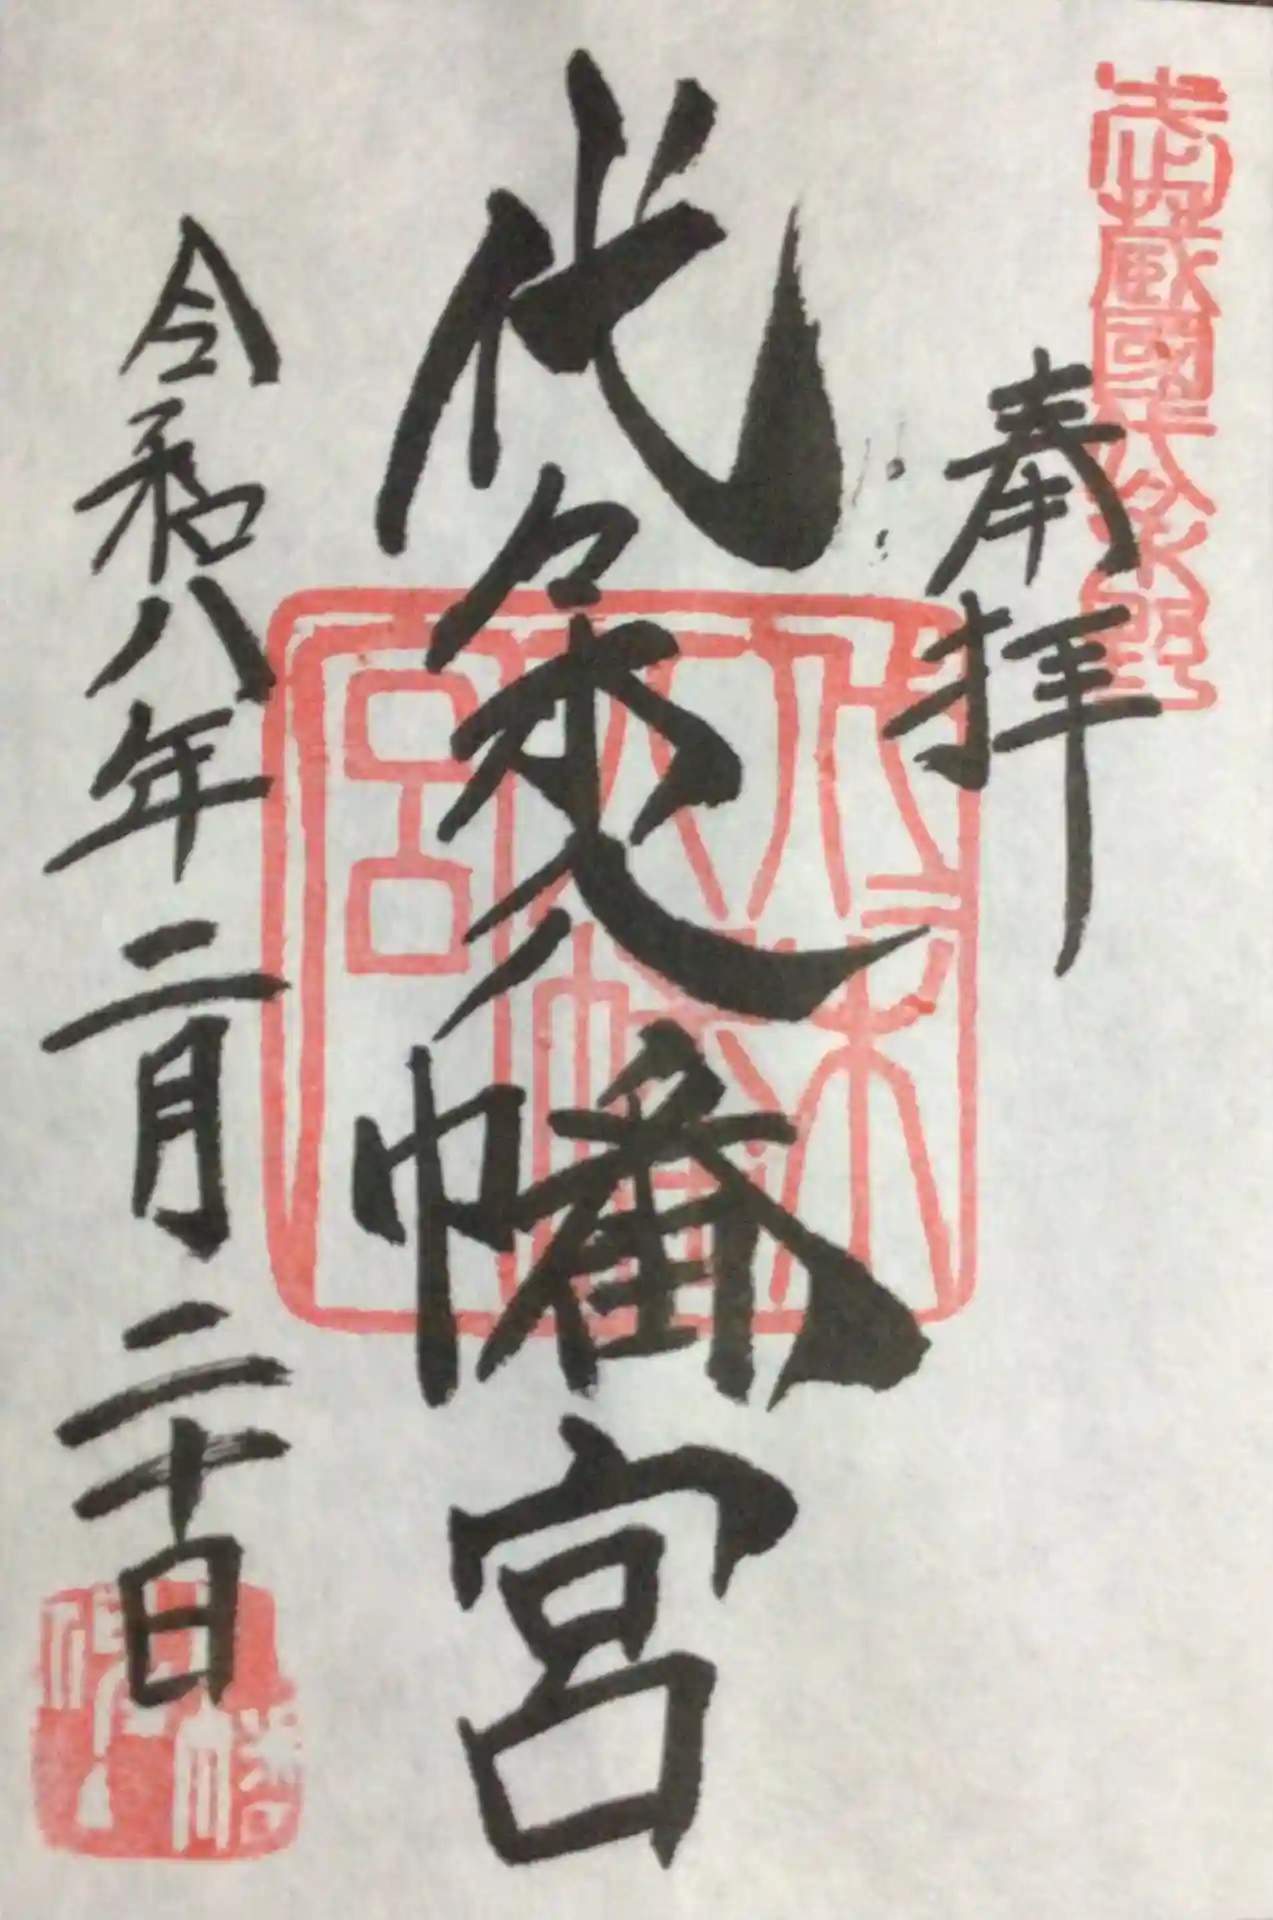 武蔵國代々木野
奉拝
代々木八幡宮
代々木
八幡
宮
令和八年二月二十日